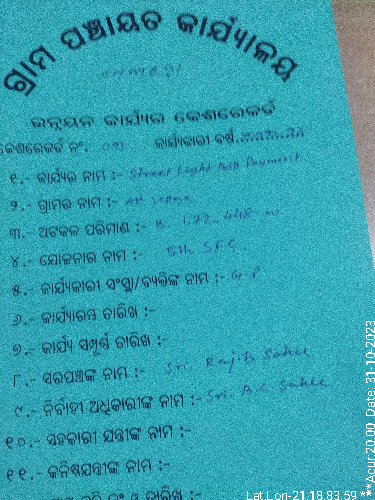 ଗ୍ରାମ ପଞ୍ଚାୟତ କାର୍ଯ୍ୟାଳୟ
ଉନ୍ନୟନ କାର୍ଯ୍ୟର କେଶରେକର୍ଡ
କେଶରେକର୍ଡ ନଂ. କାର୍ଯ୍ୟକାରୀ ବର୍ଷ.
୧.- କାର୍ଯ୍ୟର ନାମ :- Street Light Bill Payment
୨.- ଗ୍ରାମର ନାମ :- All village
୩.- ଅଟକଳ ପରିମାଣ :-
୪.- ଯୋଜନାର ନାମ :- 5th S.F.C.
୫.- କାର୍ଯ୍ୟକାରୀ ସଂସ୍ଥା/ବ୍ୟକ୍ତିଙ୍କ ନାମ :- G.P
୬.- କାର୍ଯ୍ୟାରମ୍ଭ ତାରିଖ :-
୭.- କାର୍ଯ୍ୟ ସମ୍ପୂର୍ଣ୍ଣ ତାରିଖ :-
୮.- ସରପଞ୍ଚଙ୍କ ନାମ :- Sri. Rajib Sahu
୯.- ନିର୍ବାହୀ ଅଧିକାରୀଙ୍କ ନାମ :- Sri. B.C. Sahu
୧୦.- ସହକାରୀ ଯନ୍ତ୍ରୀଙ୍କ ନାମ :-
୧୧.- କନିଷ୍ଠଯନ୍ତ୍ରୀଙ୍କ ନାମ :-
ନଂ ଓ ତାରିଖ :-
Lat Lon-21.18,83.59 ***Acur 20.00, Date: 31-10-2023